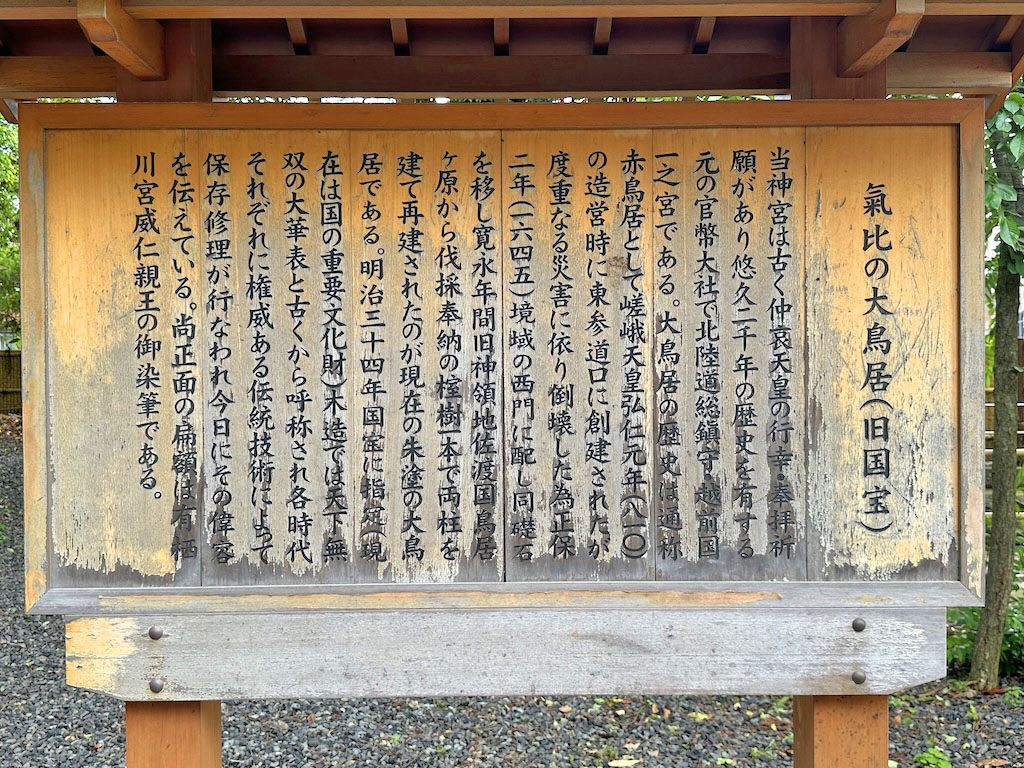 氣比の大鳥居(旧国宝)
当神宮は古く仲哀天皇の行幸・奉拝祈
願があり悠久二千年の歴史を有する
元の官幣大社で北陸道総鎮守・越前国
一之宮である。大鳥居の歴史は通称
赤鳥居として嵯峨天皇弘仁元年(八一〇)
の造営時に東参道口に創建されたが
度重なる災害に依り倒壊した為正保
二年(一六四五)境域の西門に配し同礎石
を移し寛永年間旧神領地佐渡国鳥居
ヶ原から伐採奉納の榁樹一本で両柱を
建て再建されたのが現在の朱塗の大鳥
居である。明治三十四年国宝に指定(現
在は国の重要文化財)木造では天下無
双の大華表と古くから呼称され各時代
それぞれに権威ある伝統技術によって
保存修理が行なわれ今日にその偉容
を伝えている。尚正面の扁額は有栖
川宮威仁親王の御染筆である。